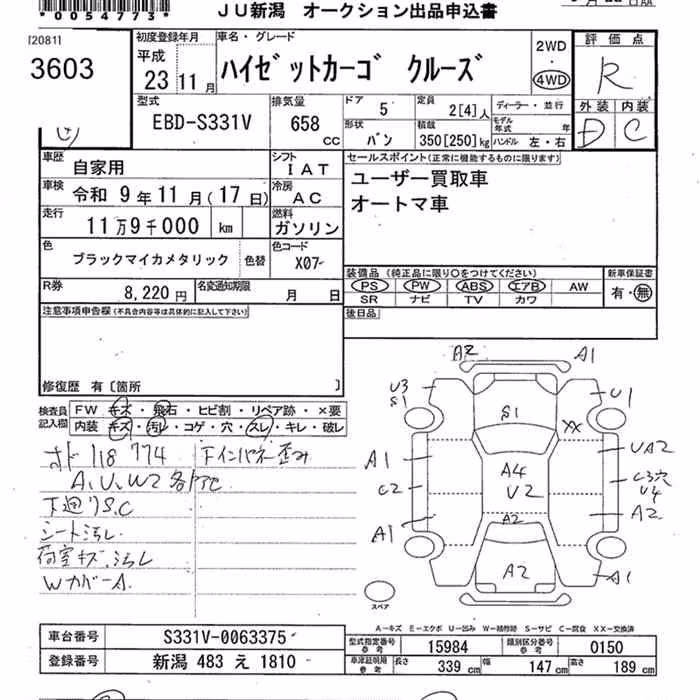 *0054773*
JU新潟 オークション出品申込書
120811
3603
初度登録年月
平成
23 11月
車名・グレード
ハイゼットカーゴ クルーズ
2WD
・
4WD
評価点
R
外装 内装
D C
型式
EBD-S331V
排気量
658 cc
ドア
5
定員
2[4]人
形状
バン
積載
350[250]kg
ディーラー・並行
モデル年式 年
ハンドル 左・右
車歴
自家用
シフト
IAT
セールスポイント(正常に機能するものに限ります)
車検
令和 9年11月(17日)
冷房
AC
ユーザー買取車
オートマ車
走行
11万9千000 km
燃料
ガソリン
色
ブラックマイカメタリック
色替
色コード
X07
R券
8,220円
名変通知期限
月 日
装備品(純正品に限り○をつけてください)
PS PW ABS エアB AW
SR ナビ TV カワ
新車保証書
有・無
後日品
注意事項申告欄(不具合内容等は具体的に記入して下さい)
修復歴 有〔箇所 〕
検査員記入欄
FW キズ・飛石・ヒビ割・リペア跡・×要
内装 キズ・汚レ・コゲ・穴・スレ・キレ・破レ
118774
A、U、W2各
下廻りS.C
シート汚レ
荷室キズ、汚レ
WカバーA
下インパネ歪み
A2 A1
U3
S1
S1
U1
XX
A1
UA2
C2
A4
U2
C3穴
U4
A1
A2
A2
A2
A1
スペア
A-キズ E-エクボ U-凹み W-補修跡 S-サビ C-腐食 XX-交換済
車台番号
S331V-0063375
登録番号
新潟 483 え 1810
型式指定番号
参考
15984
類別区分番号
参考
0150
車庫証明用
参考
長さ 339 cm
幅 147 cm
高さ 189 cm